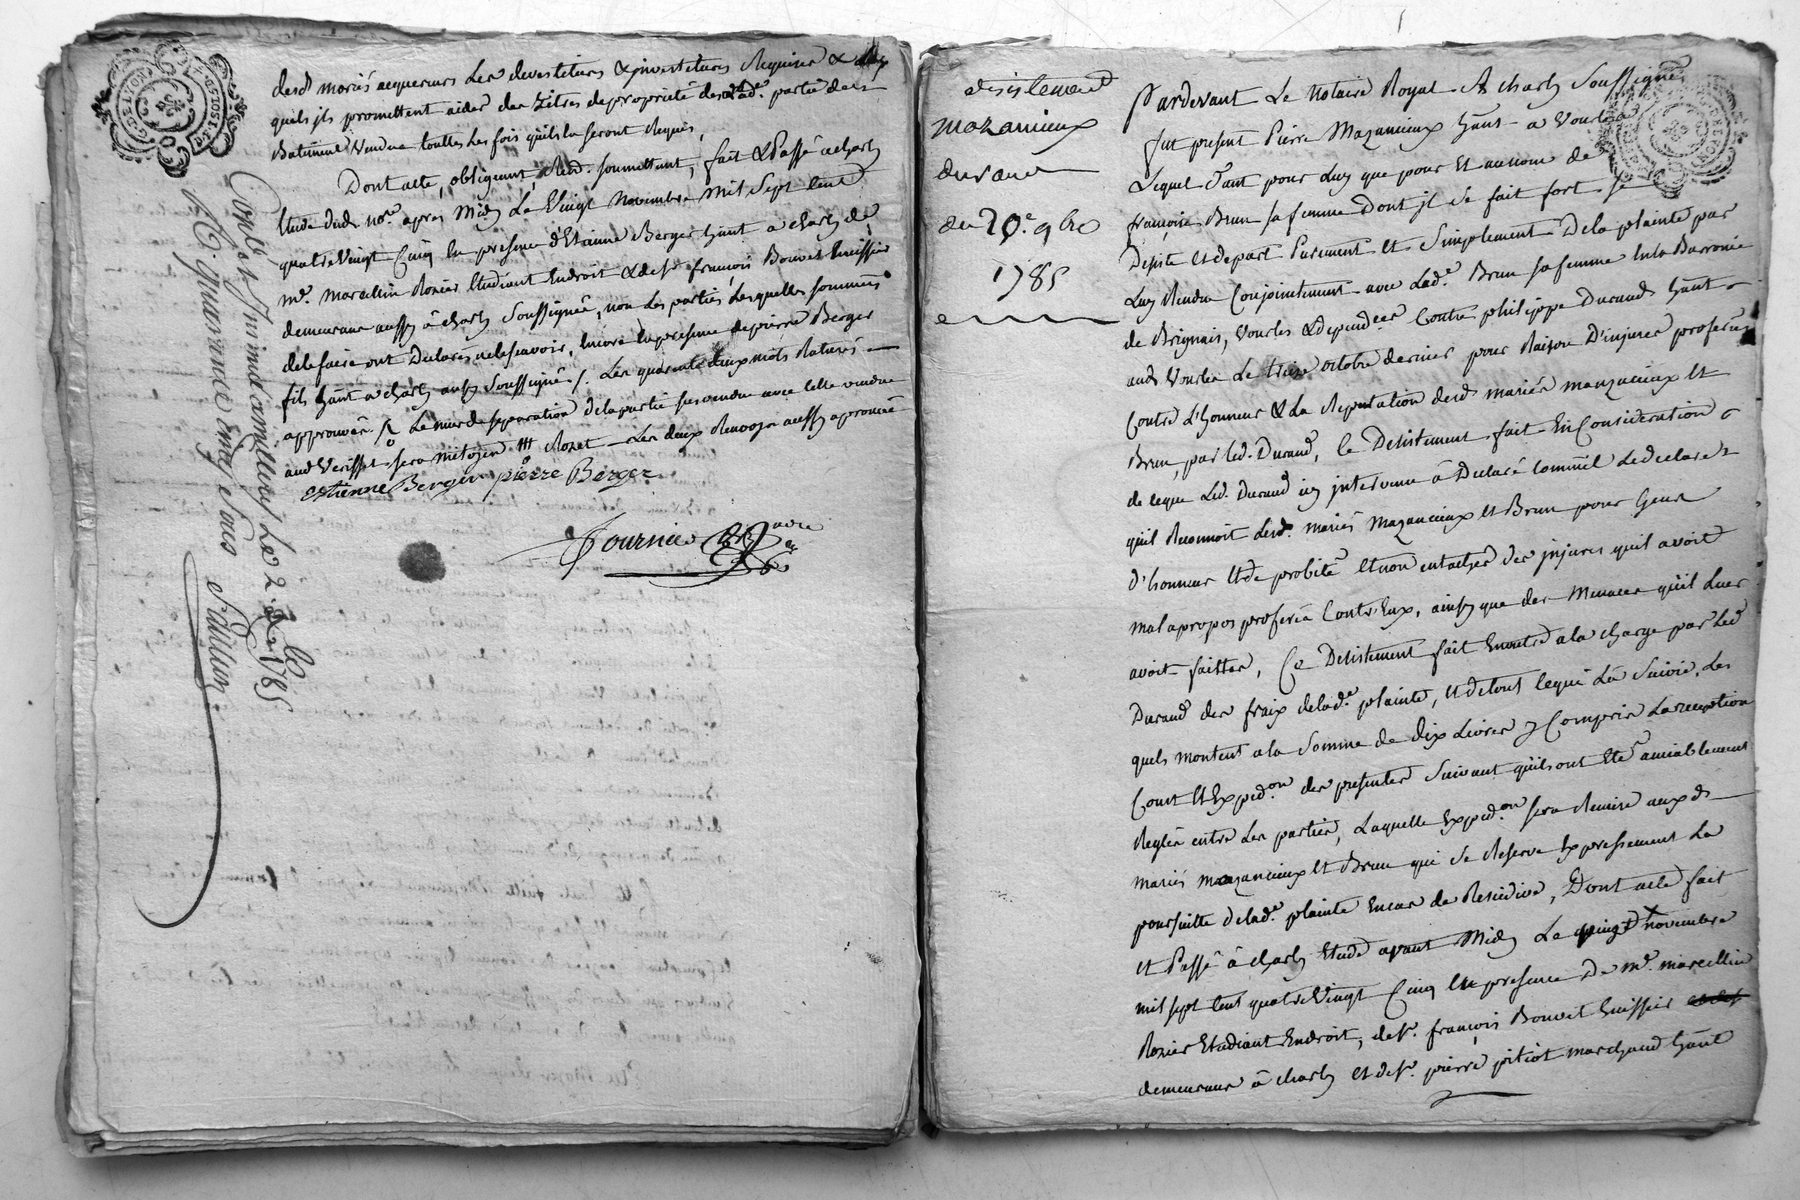 desd. mariés acquereurs les devestitures & investitures Requises &
quels ils promettent aider des titres de propriété de lad.e partie de
Batiment Vendue touttes les fois quils en seront Requis,
Dont acte, obligeant, Ren. soumettant, fait & Passé a charly
Etude dud. no.re apres Midy Le Vingt Novembre Mil Sept Cent
quatre Vingt Cinq En presence d'Etienne Berger hant a charly de
me. Marcellin Rozier Etudiant En droit & de sr. françois Bouvet huissier
demeurans aussy â charly Soussignés, non Les parties Lesquelles sommées
de le faire ont Declarés ne le scavoir, Encore En presence de pierre Berger
fils hant a charly aussy Soussigné ./. Les quarente deux mots Raturés
approuvés. /. Le mur de separation de la partie sus vendue avec celle vendue
aud Verisset sera mitoyen /// Rozet Les deux Renvoys aussy aprouvés
estienne Berger pierre Berger
Fournier
Con.lé et Insinué a millery Le 2. x.bre 1785
R. quarante cinq sous
G. DE LYON
desistement
mazancieux
durand
du 20.e 9bre
1785
Pardevant Le Notaire Royal A charly Soussigné
fut present Pierre Mazancieux hant a Vourles
Lequel Tant pour Luy que pour Et au nom de
françoise Brun sa femme Dont jl se fait fort se
Desiste Et depart Purement et Simplement De la plainte par
Luy Rendue Conjointement avec Lad.e Brun sa femme En la Baronie
de Brignais, Vourles & dependces Contre philippe Durand hant
aud Vourles Le treize octobre dernier pour Raison D'injures proferées
Contre L'honneur & La Reputation desd mariés mazancieux et
Brun, par led. Durand, le Desistement fait En Consideration
de ceque Led. Durand icy intervenu â Declaré Comme il Le declare
quil Reconnoit Lesd. mariés Mazancieux et Brun pour Gens
d'honneur Et de probité Et non entachés des injures quil avoit
mal apropos proferés Contr'Eux, ainsy que des Menaces quil Leur
avoit faittes, Ce Desistement fait En outre a la charge par Led
Durand des fraix de lad.e plainte, Et de tout ce qui L'a suivie, Les
quels montent a la somme de Dix Livres y Compris La reception
Cout Et Exped.on des presentes Suivant quils ont Eté amiablement
Reglés entre Les parties, Laquelle Exped.on sera Remise auxd
mariés mazancieux et Brun qui se Reserve Expressement La
poursuitte de lad.e plainte En cas de Residive, Dont acte fait
et Passé â charly Etude avant Midy Le vingt novembre
mil sept Cent quatre Vingt Cinq En presence De me. marcellin
Rozier Etudiant En droit, de sr. françois Bouvet huissier
demeurans â charly et de sr. pierre pitiot marchand hant